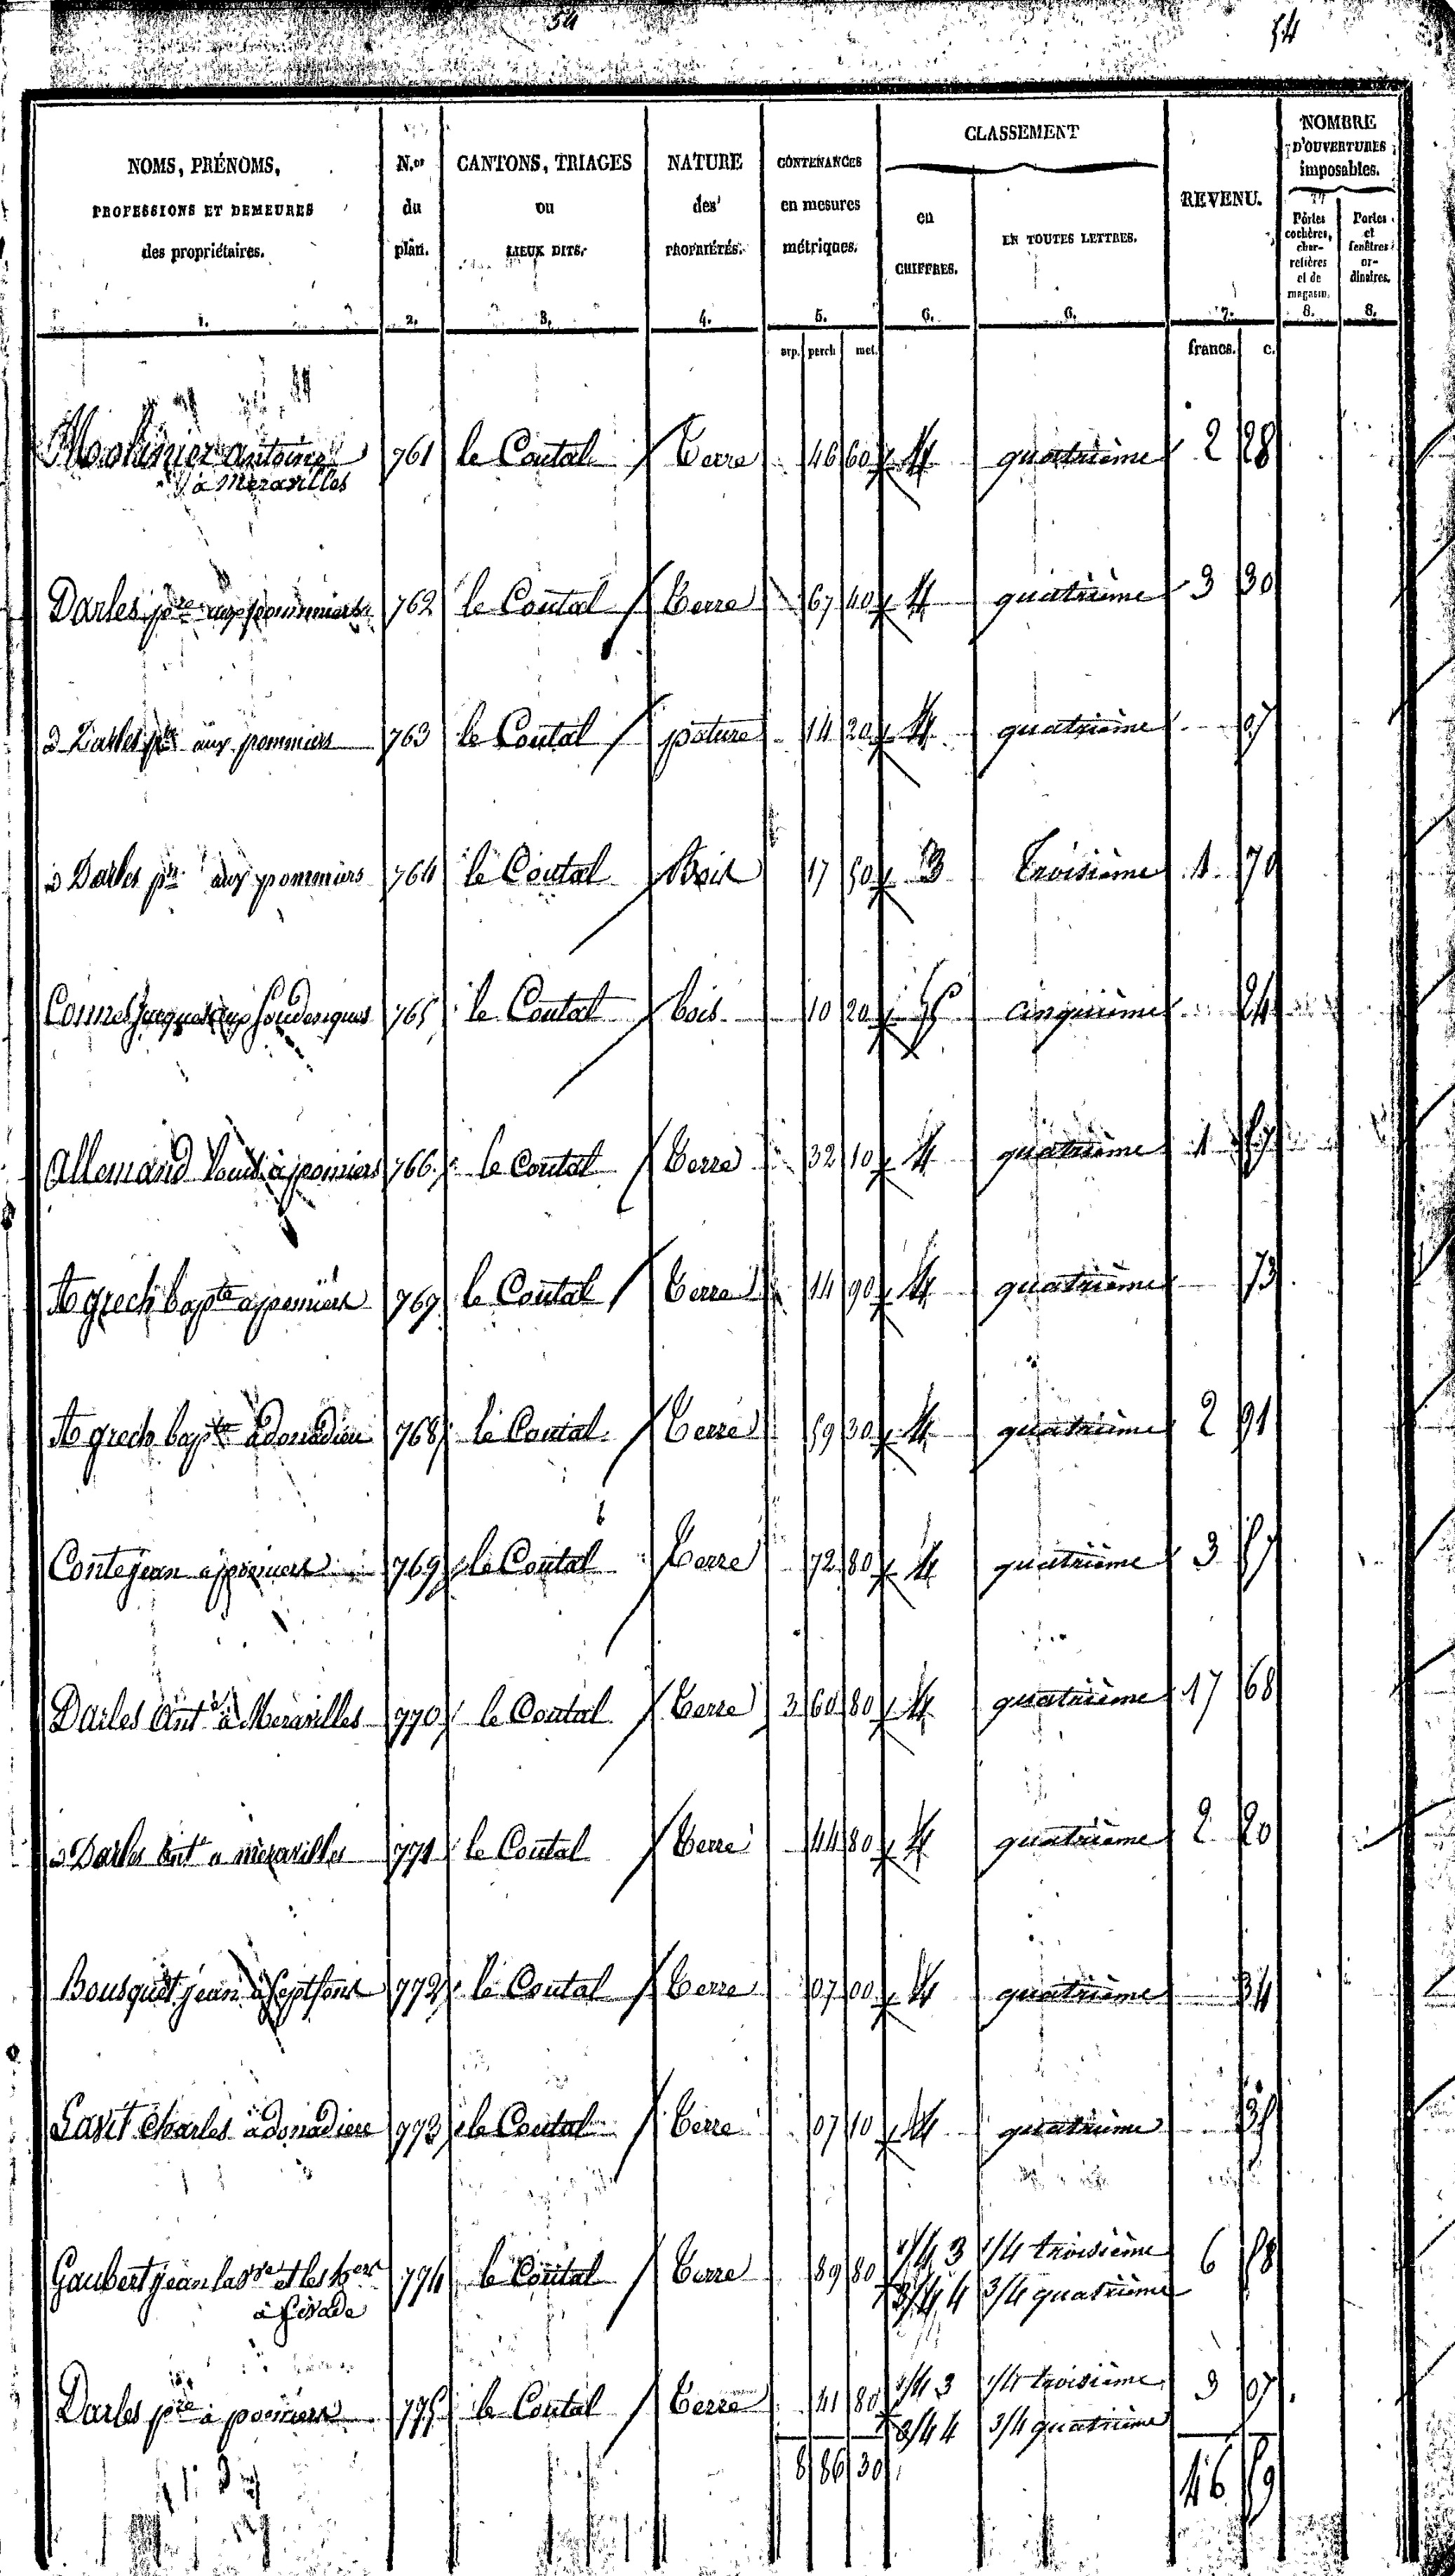 54
54
NOMS, PRÉNOMS, PROFESSIONS ET DEMEURES des propriétaires. 1.
N.os du plan. 2.
CANTONS, TRIAGES ou LIEUX DITS. 3.
NATURE des PROPRIÉTÉS. 4.
CONTENANCES en mesures métriques. 5.
CLASSEMENT
en CHIFFRES. 6.
EN TOUTES LETTRES. 6.
REVENU. 7.
NOMBRE D'OUVERTURES imposables.
Portes cochères, charretières et de magasin. 8.
Portes et fenêtres ordinaires. 8.
arp. perch met. francs. c.
Molinier antoine 761 le Coutal Terre 46 60 4 quatrième 2 28
à Meravilles
Darles pre aux pommiers 762 le Coutal Terre 67 40 4 quatrième 3 30
Darles pre aux pommiers 763 le Coutal pature 14 20 4 quatrième 07
Darles pre aux pommiers 764 le Coutal Bois 17 50 3 troisième 1 70
765 le Coutal bois 10 20 5 cinquième 24
Allemand Louis à pomiers 766 le Coutal Terre 32 10 4 quatrième 1 57
Agrech bapte a pomiers 769 le Coutal Terre 14 90 4 quatrième 73
Agrech bapte à donadieu 768 le Coutal Terre 59 30 4 quatrième 2 91
Conte jean a pomiers 769 le Coutal Terre 72 80 4 quatrième 3 57
Darles Ant à Meravilles 770 le Coutal Terre 3 60 80 4 quatrième 17 68
Darles Ant a meravilles 771 le Coutal Terre 44 80 4 quatrième 2 20
Bousquet jean à Septfons 772 le Coutal Terre 07 00 4 quatrième 34
Charles à donadieu 773 le Coutal Terre 07 10 4 quatrième 35
Gaubert jean la vve et les hers 774 le Coutal Terre 89 80 1/4 3 1/4 troisième 6 58
3/4 4 3/4 quatrième
Darles pre à pomiers 775 le Coutal Terre 41 80 1/4 3 1/4 troisième 3 07
3/4 4 3/4 quatrième
8 86 30 46 59